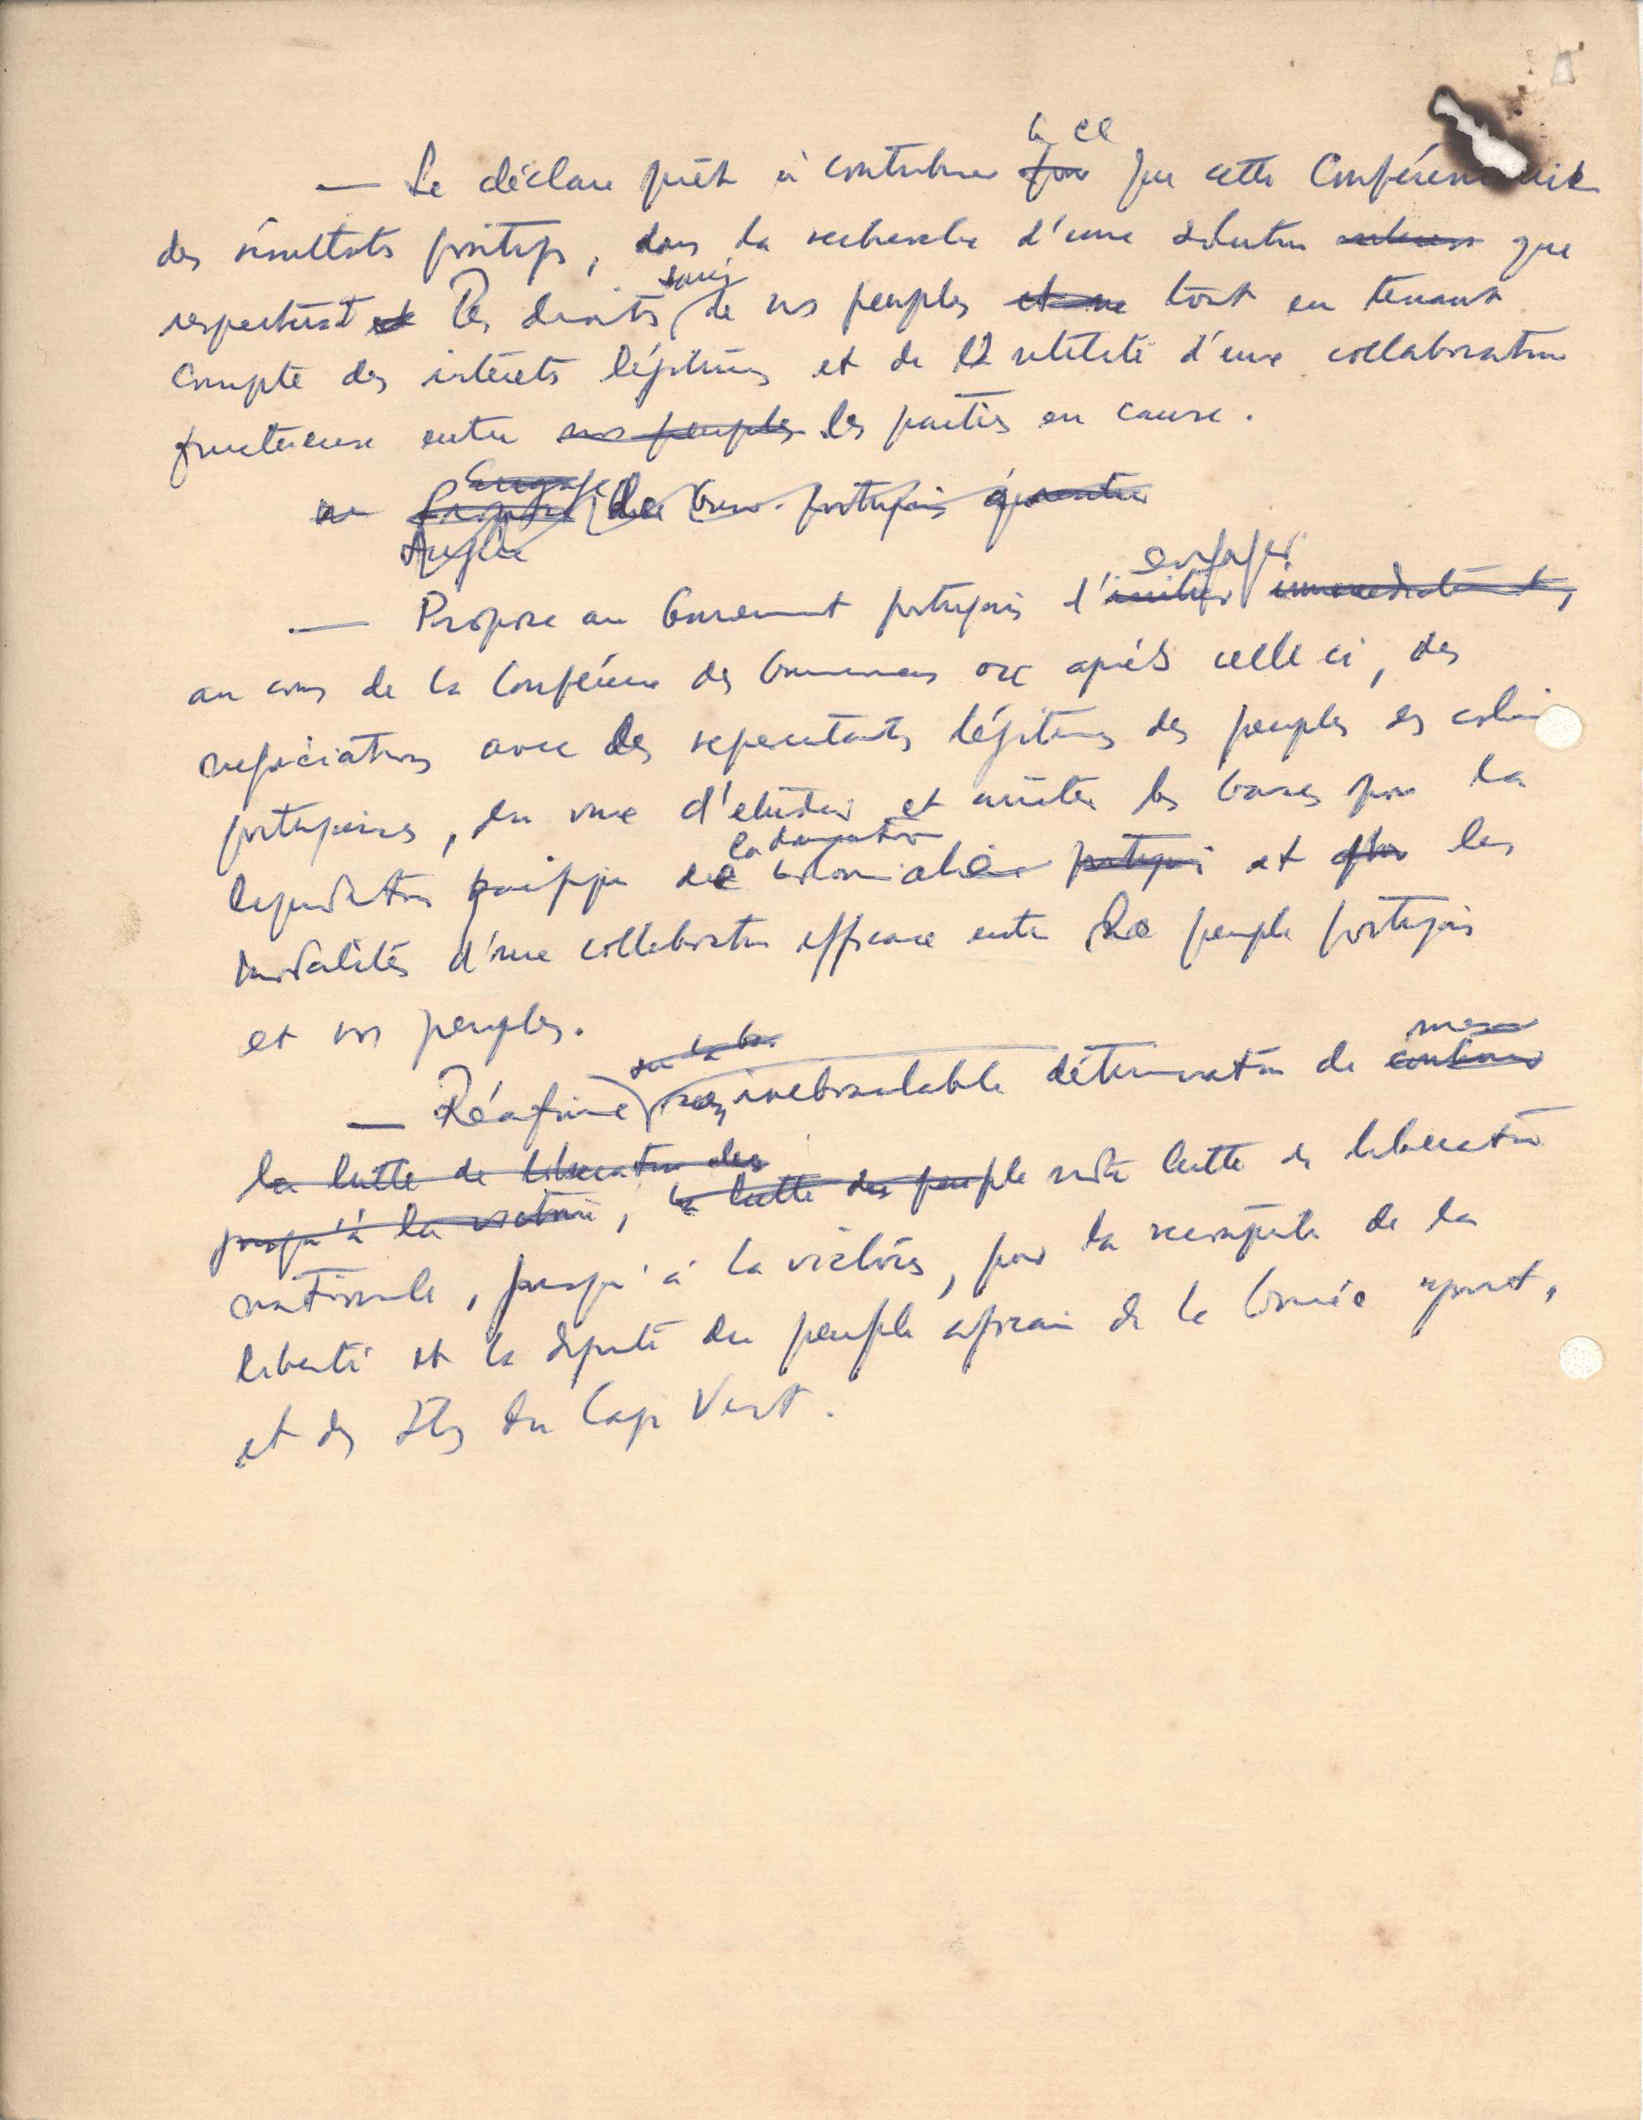 à ce
— Se déclare prêt à contribuer pour que cette Conféren ait
des résultats positifs, dans la recherche d'une solution que
sacrés
respecterait et les droits de nos peuples et ne tout en tenant
compte des intérêts légitimes et de l'utilité d'une collaboration
fructueuse entre nos peuples les parties en cause.
Engage
Propose Gouv. portugais
engager
— Propose au Gouvernement portugais d'initier immédiatement,
au cours de la Conférence des ou après celle ci, des
négociations avec des representants légitimes des peuples des coloni
portugaises, en vue d'etudier et arrêter les bases pour la
la domination
liquidation pacifique de coloniale portugais et pour les
modalités d'une collaboration efficace entre le peuple portugais
et nos peuples.
sur la ba mener
— Réafirme son inebranlable détermination de continuer
la lutte de liberation des
jusqu'à la victoire, la lutte des peuple notre lutte de liberation
nationale, jusqu'à la victoire, pour la reconquête de la
liberté et la dignité du peuple africain de la Guinée "port",
et des Iles du Cap Vert.